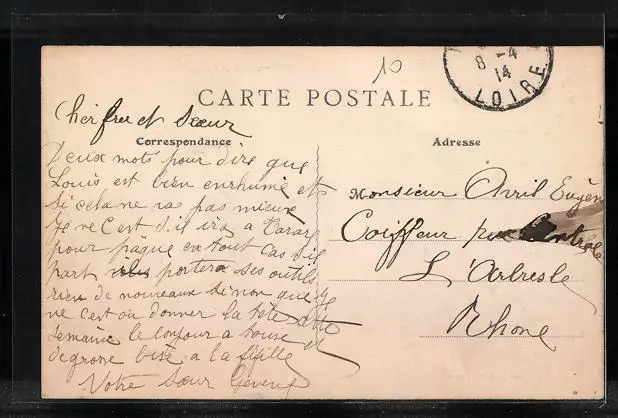 10
8 -4
14
LOIRE
CARTE POSTALE
Cher frer et Sœur
Correspondance
Adresse
Deux mots pour dire que
Louis est bien enrhumé et
si cela ne va pas mieux
Je ne C'est s'il ira a Tarare
pour pâque en tout cas s'il
part portera ses outils
rien de nouveaux sinon que Je
ne C'est ou donner la tete cette
semaine le bonjour a tous et
de grosse bise a la fifille
Votre Sœur
Monsieur Avril Eugène
Coiffeur rue Centrale
L'Arbresle
Rhone